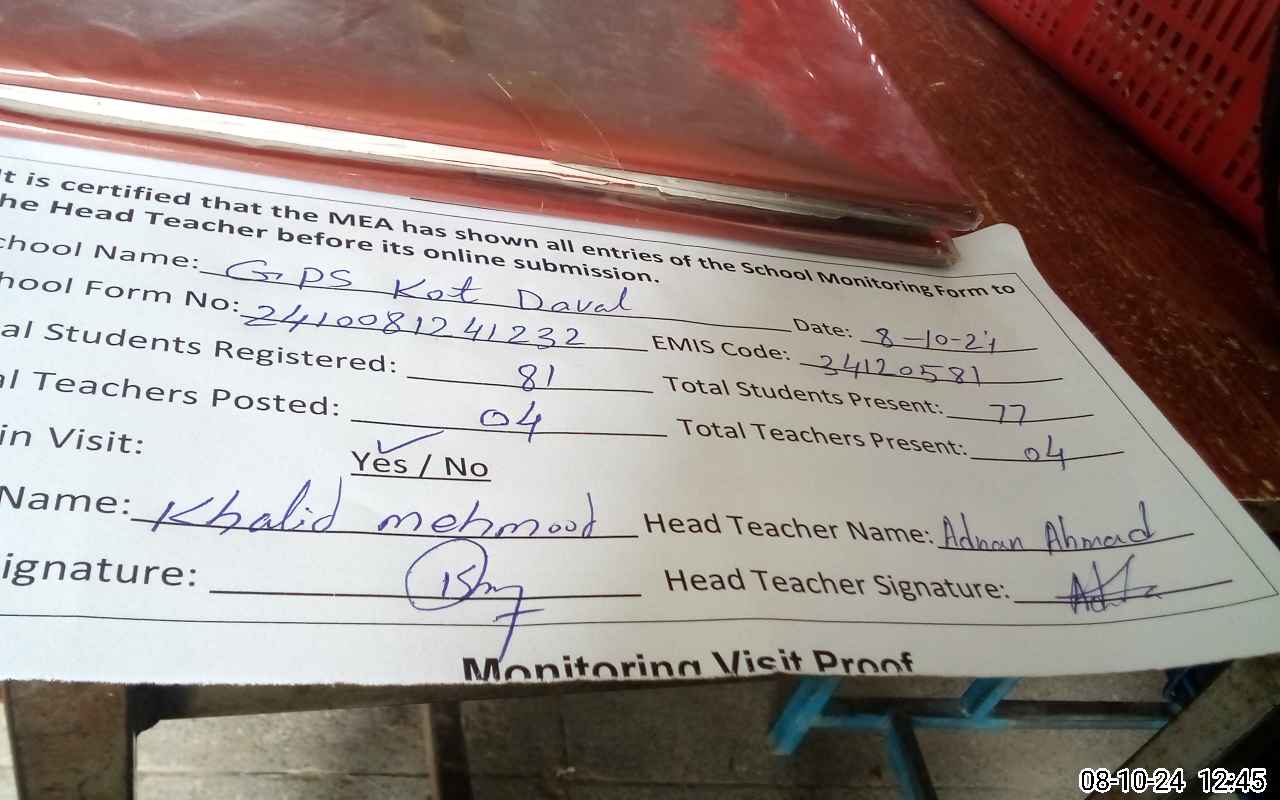 It is certified that the MEA has shown all entries of the School Monitoring Form to
he Head Teacher before its online submission.
chool Name: GPS Kot Daval Date: 8-10-24
hool Form No: 2410081241232 EMIS Code: 34120581
al Students Registered: 81 Total Students Present: 77
al Teachers Posted: 04 Total Teachers Present: 04
in Visit: Yes / No
Name: Khalid mehmood Head Teacher Name: Adnan Ahmad
ignature: Head Teacher Signature:
Monitoring Visit Proof
08-10-24 12:45